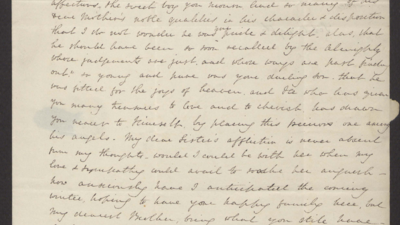 affections. The sweet boy you mourn had so many of his
dear Mother's noble qualities in his character & disposition
that I do not wonder he was your pride & delight, alas, that
he should have been so soon recalled by the Almighty
whose judgments are just, and whose ways are past finding
out so young and pure was your darling son, that he
was fitted for the joys of heaven, and He who has given
you many treasures to love and to cherish has drawn
you nearer to Himself, by placing this precious one among
his angels. My dear Sister's affliction is never absent
from my thoughts, would I could be with her when my
love & sympathy could avail to soothe her anguish—
how anxiously have I anticipated the coming
winter, hoping to have your happy family here, but
my dearest Mother, being what you still have